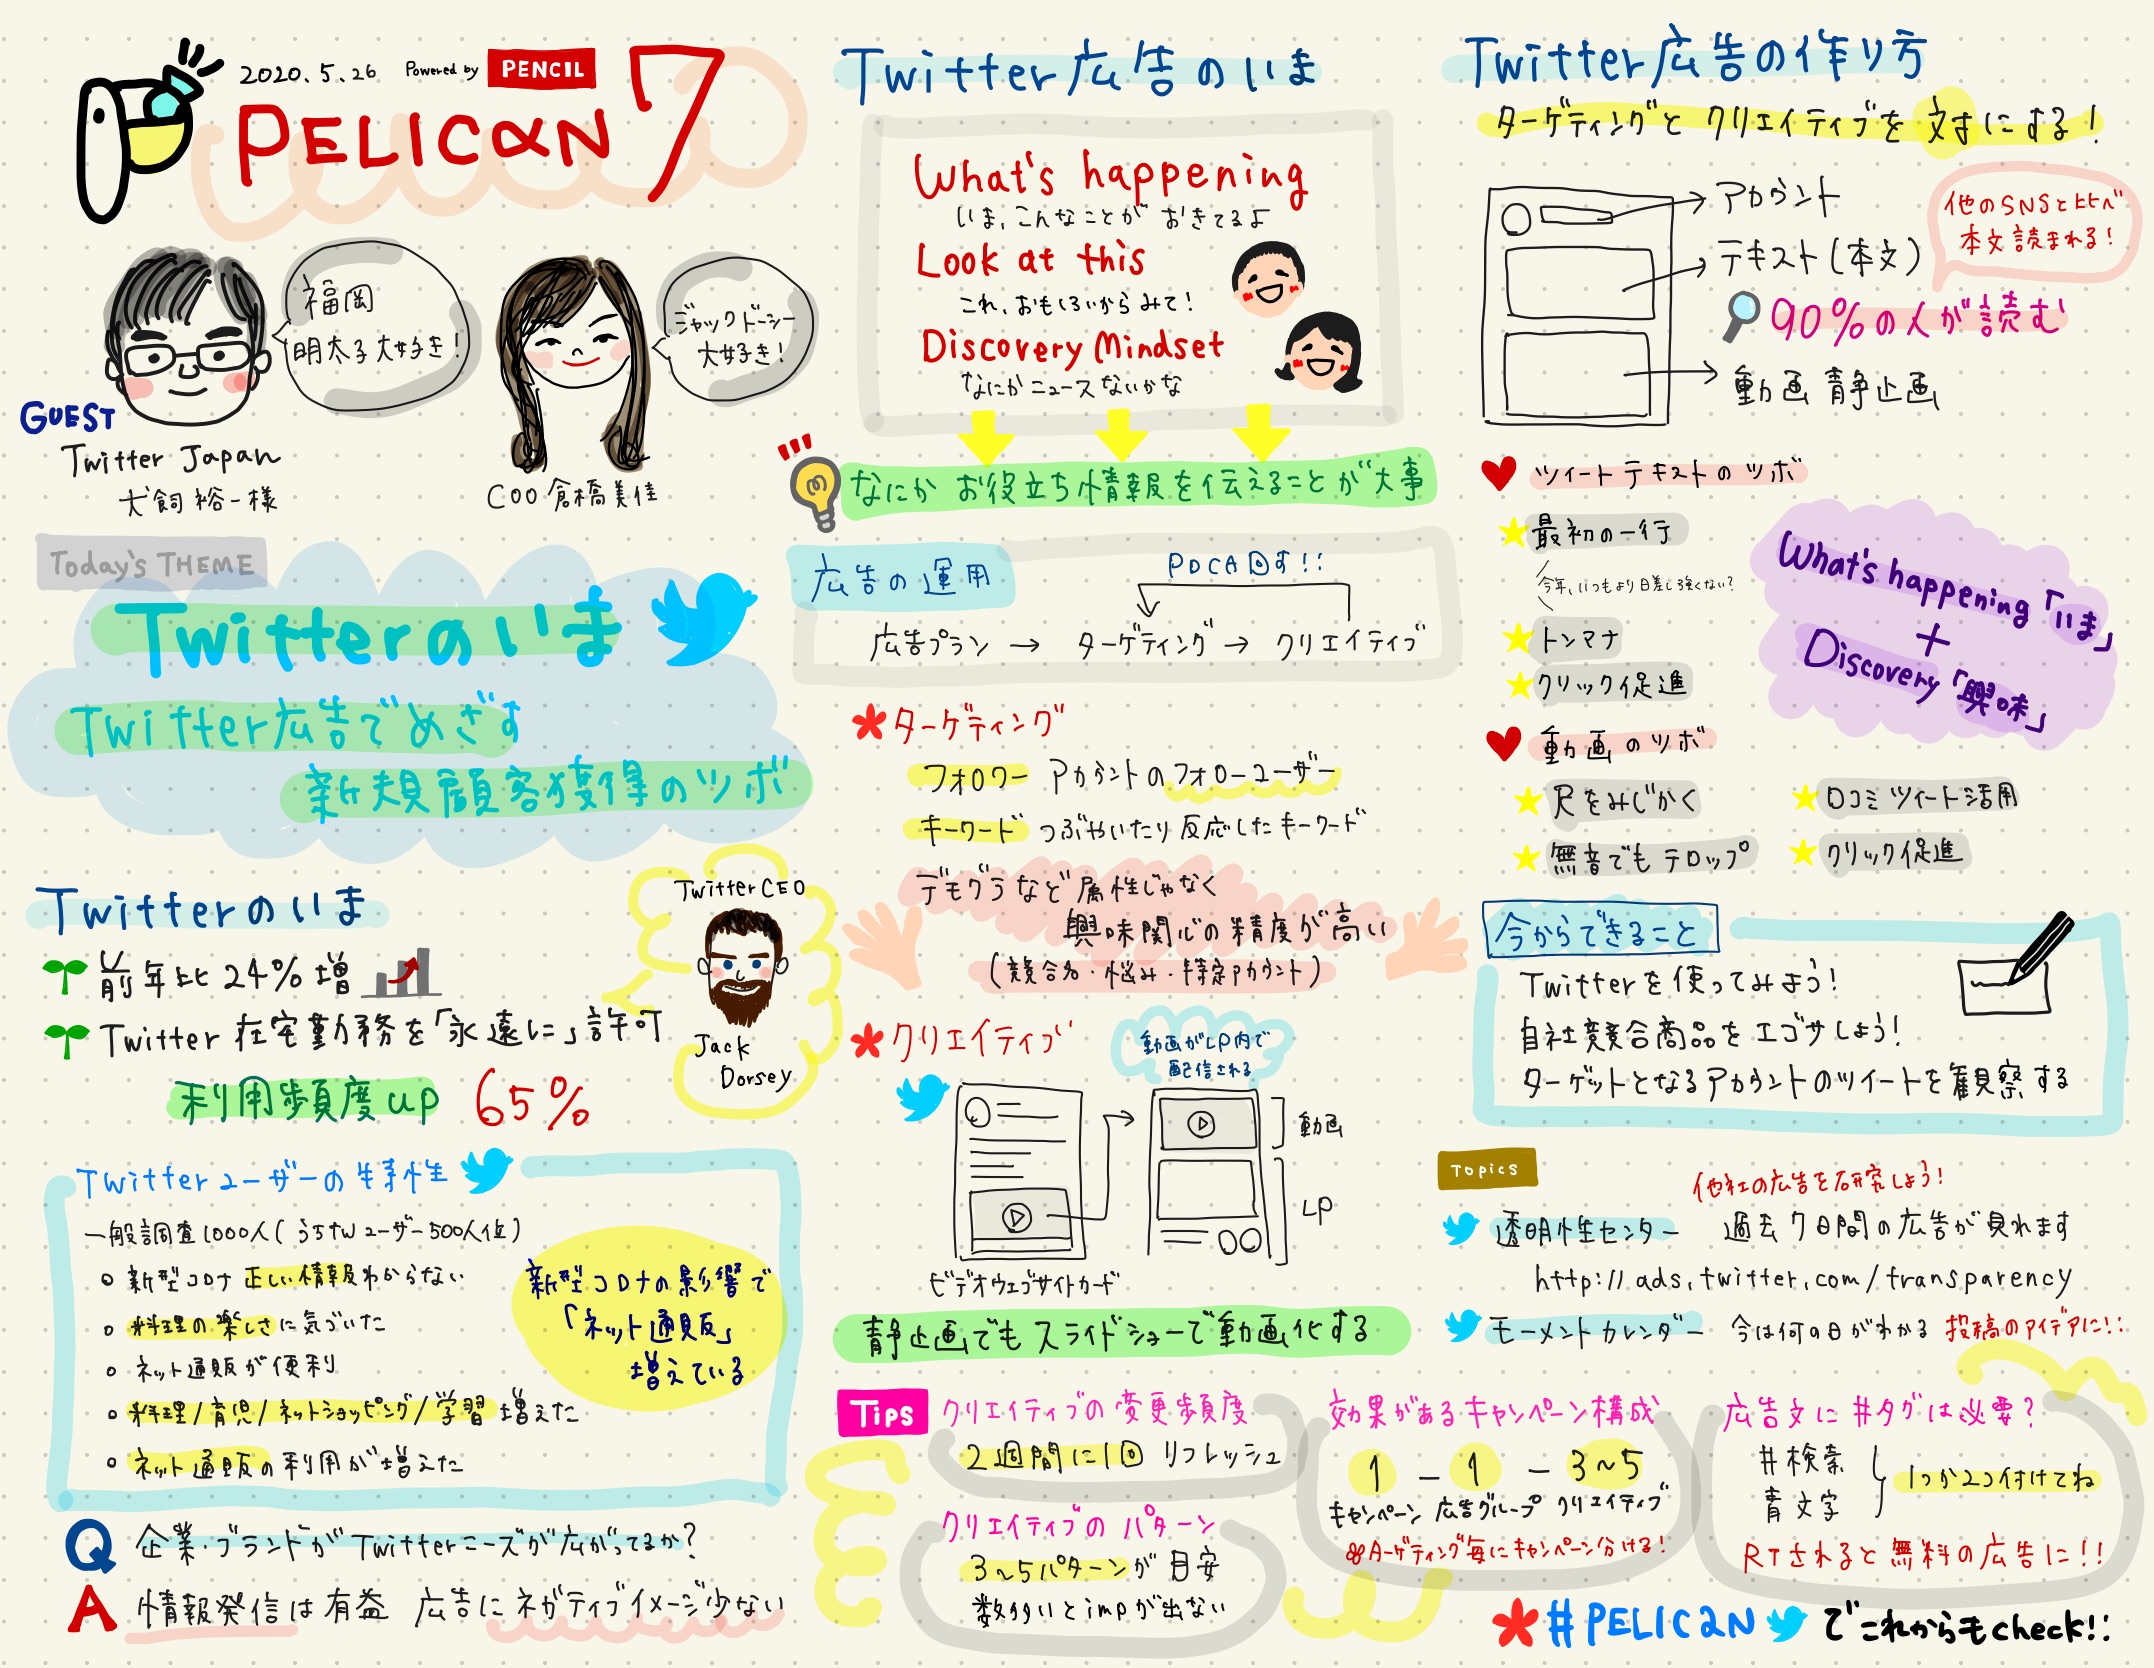 2020.5.26 Powered by PENCIL
PELICAN 7
福岡
明太子大好き!
ジャックドーシー
大好き!
GUEST
Twitter Japan
犬飼裕一様
COO 倉橋美佳
Today's THEME
Twitterのいま
Twitter広告でめざす
新規顧客獲得のツボ
Twitterのいま
前年比24%増
Twitter在宅勤務を「永遠に」許可
利用頻度up 65%
Twitter CEO
Jack
Dorsey
Twitterユーザーの特性
一般調査1000人(うちTWユーザー500人位)
新型コロナ 正しい情報わからない
料理の楽しさに気づいた
ネット通販が便利
料理/育児/ネットショッピング/学習 増えた
ネット通販の利用が増えた
新型コロナの影響で
「ネット通販」
増えている
Q 企業・ブランドがTwitterニーズが広がってるか?
A 情報発信は有益 広告にネガティブイメージ少ない
Twitter広告のいま
What's happening
いま、こんなことが おきてるよ
Look at this
これ、おもしろいからみて!
Discovery Mindset
なにかニュースないかな
なにか お役立ち情報を伝えることが大事
広告の運用
PDCA回す!!
広告プラン → ターゲティング → クリエイティブ
ターゲティング
フォロワー アカウントのフォローユーザー
キーワード つぶやいたり反応したキーワード
デモグラなど属性じゃなく
興味関心の精度が高い
(競合名・悩み・特定アカウント)
クリエイティブ
動画がLP内で
配信される
動画
LP
ビデオウェブサイトカード
静止画でもスライドショーで動画化する
Tips
クリエイティブの変更頻度
2週間に1回 リフレッシュ
クリエイティブのパターン
3〜5パターンが目安
数多いとimpが出ない
効果があるキャンペーン構成
1 - 1 - 3〜5
キャンペーン 広告グループ クリエイティブ
ターゲティング毎にキャンペーン分ける!
広告文に#タグは必要?
#検索
青文字
1つか2つ付けてね
RTされると無料の広告に!!
Twitter広告の作り方
ターゲティングとクリエイティブを対にする!
アカウント
テキスト(本文)
他のSNSと比べ
本文読まれる!
90%の人が読む
動画 静止画
ツイートテキストのツボ
最初の一行
今年、いつもより日差し強くない?
トンマナ
クリック促進
What's happening「いま」
+
Discovery「興味」
動画のツボ
尺をみじかく
口コミツイート活用
無音でもテロップ
クリック促進
今からできること
Twitterを使ってみよう!
自社競合商品をエゴサしよう!
ターゲットとなるアカウントのツイートを観察する
Topics
他社の広告を研究しよう!
透明性センター 過去7日間の広告が見れます
http://ads.twitter.com/transparency
モーメントカレンダー 今は何の日がわかる 投稿のアイデアに!!
#PELICAN でこれからもcheck!!